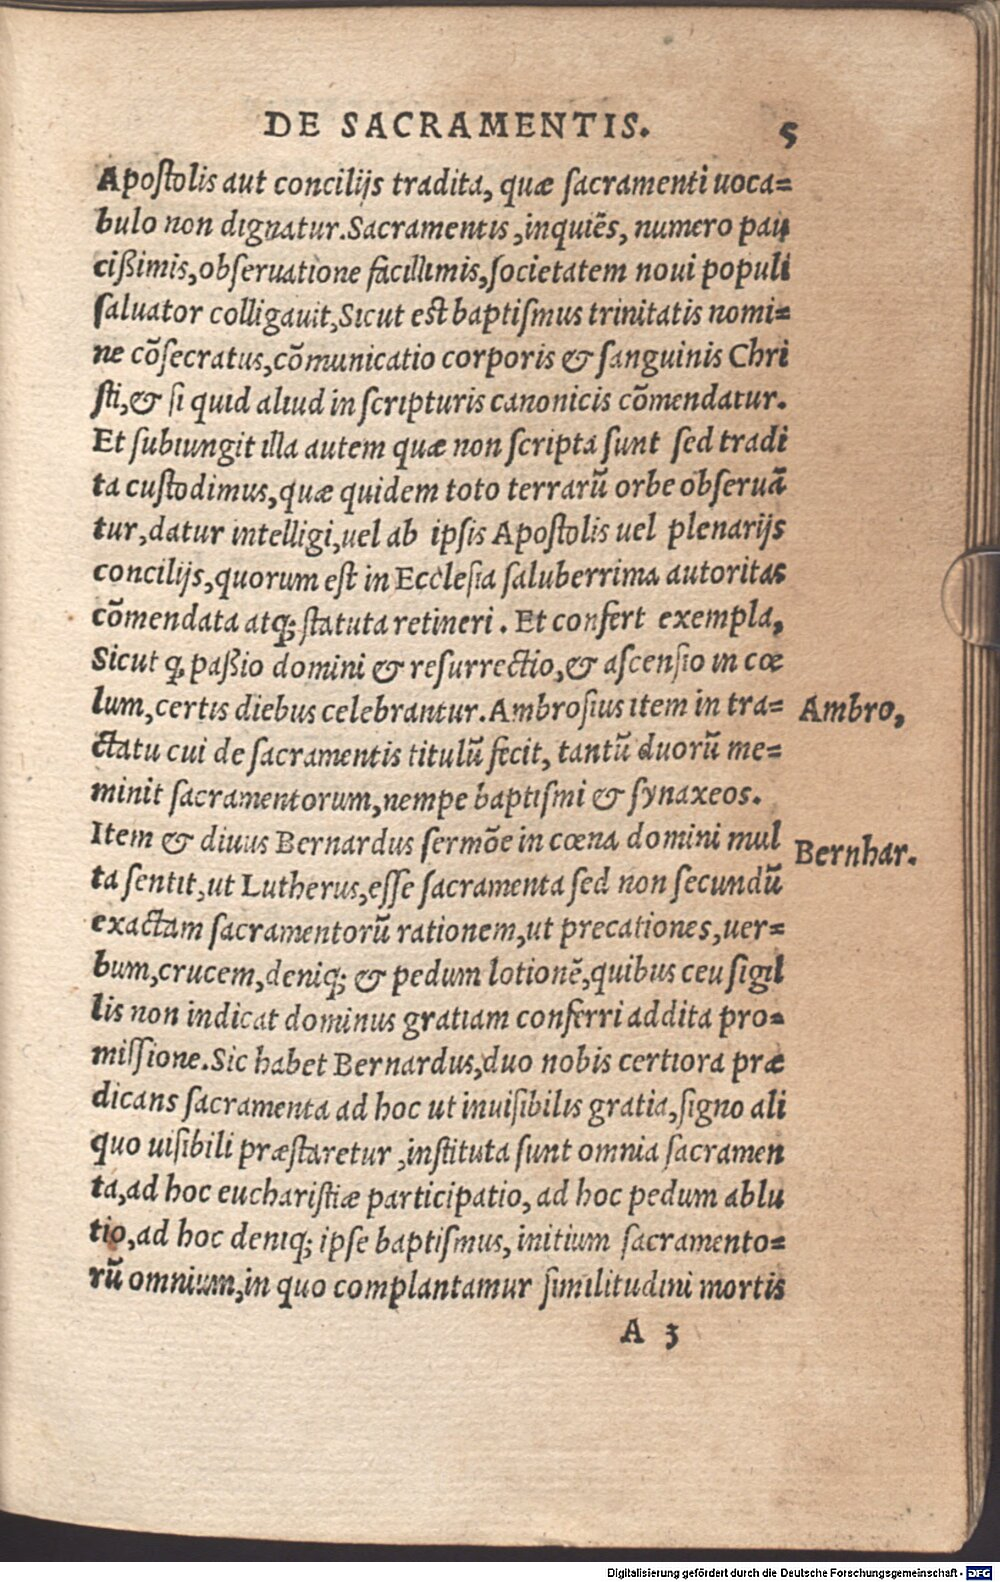 DE SACRAMENTIS. 5
Apoſtolis aut concilijs tradita, quæ ſacramenti uoca=
bulo non dignatur. Sacramentis, inquiẽs, numero pau
cißimis, obſeruatione facillimis, ſocietatem noui populi
ſaluator colligauit, Sicut est baptiſmus trinitatis nomi=
ne cõſecratus, cõmunicatio corporis & ſanguinis Chri
ſti, & ſi quid aliud in ſcripturis canonicis cõmendatur.
Et ſubiungit illa autem quæ non ſcripta ſunt ſed tradi
ta cuſtodimus, quæ quidem toto terrarũ orbe obſeruã
tur, datur intelligi, uel ab ipſis Apoſtolis uel plenarijs
concilijs, quorum eſt in Eccleſia ſaluberrima autoritas
cõmendata atq; ſtatuta retineri. Et confert exempla,
Sicut ꝙ paßio domini & reſurrectio, & aſcenſio in cœ
lum, certis diebus celebrantur. Ambroſius item in tra= Ambro,
ctatu cui de ſacramentis titulũ fecit, tantũ duorũ me=
minit ſacramentorum, nempe baptiſmi & ſynaxeos.
Item & diuus Bernardus ſermõe in cœna domini mul Bernhar.
ta ſentit, ut Lutherus, eſſe ſacramenta ſed non ſecundũ
exactam ſacramentorũ rationem, ut precationes, uer=
bum, crucem, deniq; & pedum lotionẽ, quibus ceu ſigil
lis non indicat dominus gratiam conferri addita pro=
miſſione. Sic habet Bernardus, duo nobis certiora præ
dicans ſacramenta ad hoc ut inuiſibilis gratia, ſigno ali
quo uiſibili præſtaretur, inſtituta ſunt omnia ſacramen
ta, ad hoc euchariſtiæ participatio, ad hoc pedum ablu
tio, ad hoc deniq; ipſe baptiſmus, initium ſacramento=
rũ omnium, in quo complantamur ſimilitudini mortis
A 3
Digitalisierung gefördert durch die Deutsche Forschungsgemeinschaft - DFG